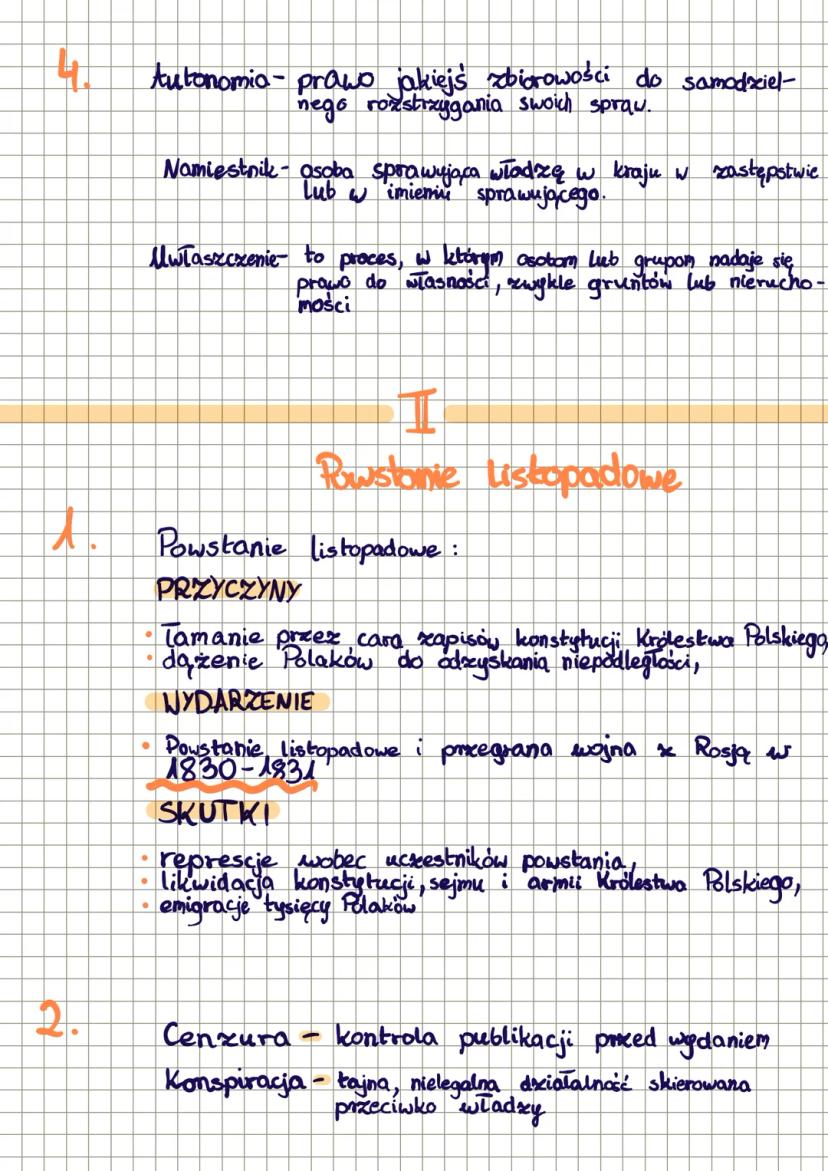 4. Autonomia - prawo jakiejś zbiorowości do samodziel-
nego rozstrzygania swoich spraw.
Namiestnik - osoba sprawująca władzę w kraju w zastępstwie
lub w imieniu sprawującego.
Uwłaszczenie - to proces, w którym osobom lub grupom nadaje się
prawo do własności, zwykle gruntów lub nierucho-
mości
II
Powstanie listopadowe
1. Powstanie listopadowe :
PRZYCZYNY
• łamanie przez cara zapisów konstytucji Królestwa Polskiego,
• dążenie Polaków do odzyskania niepodległości,
WYDARZENIE
• Powstanie listopadowe i przegrana wojna z Rosją w
1830-1831
SKUTKI
• represje wobec uczestników powstania,
• likwidacja konstytucji, sejmu i armii Królestwa Polskiego,
• emigracje tysięcy Polaków
2. Cenzura - kontrola publikacji przed wydaniem
Konspiracja - tajna, nielegalna działalność skierowana
przeciwko władzy